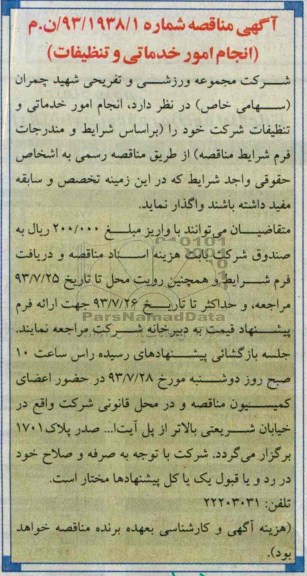 آگهی مناقصه شماره ۹۳/۱۹۳۸/۱/ن.م
(انجام امور خدماتی و تنظیفات)
شرکت مجموعه ورزشی و تفریحی شهید چمران
(سهامی خاص) در نظر دارد، انجام امور خدماتی و
تنظیفات شرکت خود را (براساس شرایط و مندرجات
فرم شرایط مناقصه) از طریق مناقصه رسمی به اشخاص
حقوقی واجد شرایط که در این زمینه تخصص و سابقه
مفید داشته باشند واگذار نماید.
متقاضیان می‌توانند با واریز مبلغ ۲۰۰/۰۰۰ ریال به
صندوق شرکت بابت هزینه اسناد مناقصه و دریافت
فرم شرایط و همچنین رویت محل تا تاریخ ۹۳/۷/۲۵
مراجعه، و حداکثر تا تاریخ ۹۳/۷/۲۶ جهت ارائه فرم
پیشنهاد قیمت به دبیرخانه شرکت مراجعه نمایند.
جلسه بازگشائی پیشنهادهای رسیده راس ساعت ۱۰
صبح روز دوشنبه مورخ ۹۳/۷/۲۸ در حضور اعضای
کمیسیون مناقصه و در محل قانونی شرکت واقع در
خیابان شریعتی بالاتر از پل آیت‌ا... صدر پلاک ۱۷۰۱
برگزار می‌گردد. شرکت با توجه به صرفه و صلاح خود
در رد و یا قبول یک یا کل پیشنهادها مختار است.
تلفن: ۲۲۲۰۳۰۳۱
(هزینه آگهی و کارشناسی بعهده برنده مناقصه خواهد
بود).
ParsNamadData